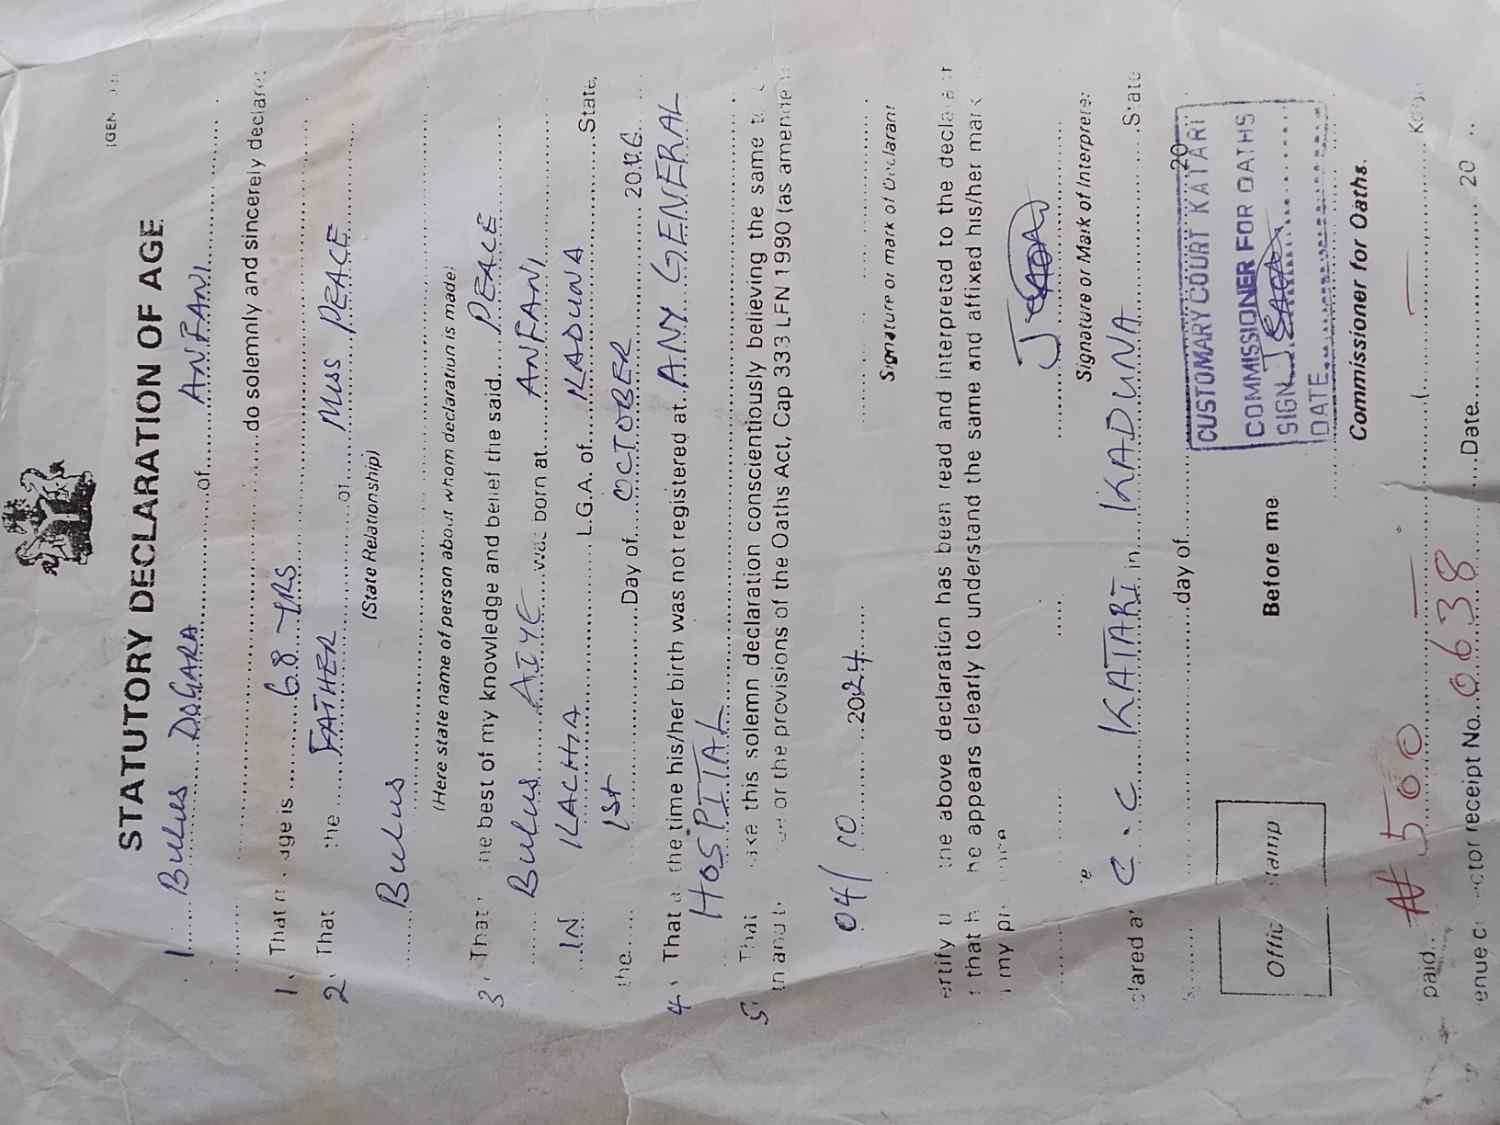 IGEN
STATUTORY DECLARATION OF AGE
I Bulus DAGARA of ANFANI
do solemnly and sincerely declare
1. That age is 68 YRS
2. That the FATHER of Miss PEACE
(State Relationship)
Bulus
(Here state name of person about whom declaration is made)
3. That he best of my knowledge and belief the said PEACE
Bulus AIYE was born at ANFANI
IN KACHIA L.G.A. of KADUNA State,
the 1st Day of OCTOBER
4. That a the time his/her birth was not registered at ANY GENERAL
HOSPITAL
5. That ake this solemn declaration conscientiously believing the same t
in and or the provisions of the Oaths Act, Cap 333 LFN 1990 (as amende
04/10 2024
Signature or mark of Declarant
ertify the above declaration has been read and interpreted to the declarar
that he appears clearly to understand the same and affixed his/her mark
my pr
Signature or Mark of Interpreter
e
clared a C.C KATARI in KADUNA State
day of 20
CUSTOMARY COURT KATARI
COMMISSIONER FOR OATHS
SIGN
DATE
Before me
Commissioner for Oaths.
Offic tamp
paid ₦ 500 K
enue c ctor receipt No. 0638 Date 20